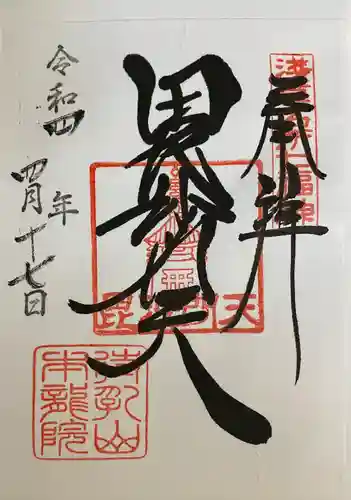 奉拝
毘沙門天
令和四年
四月十七日
待乳山
本龍院